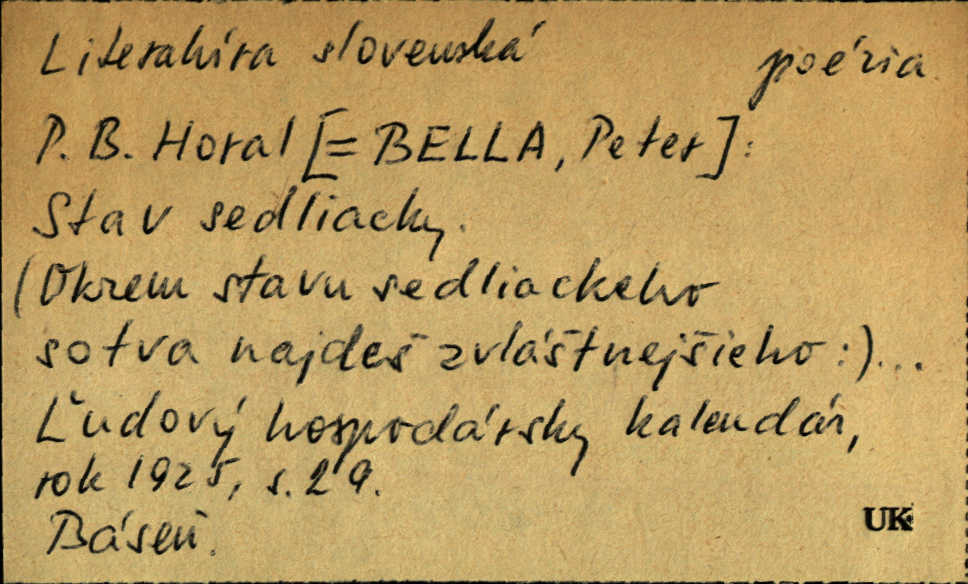 Literatúra slovenská poézia
P. B. Horal [= BELLA, Peter]:
Stav sedliacky.
(Okrem stavu sedliackeho
sotva najdeš zvláštnejšieho:)...
Ľudový hospodársky kalendár,
rok 1925, s. 29.
Báseň.
UK